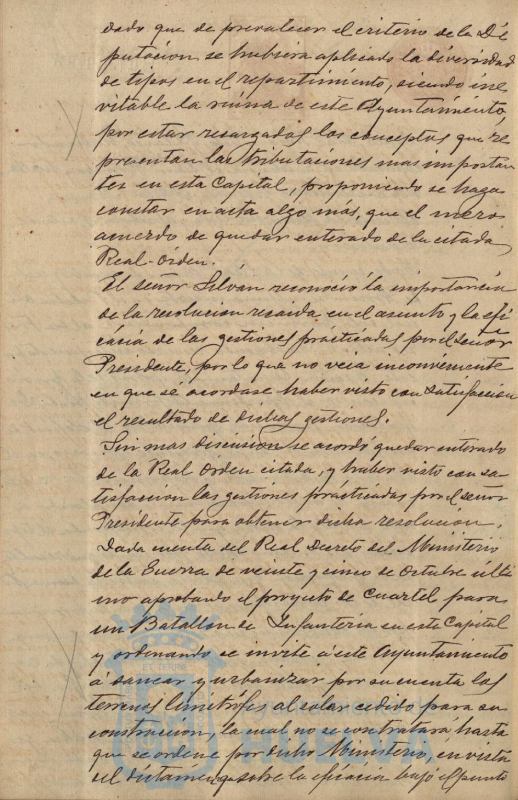 dado que de prevalecer el criterio de la Di
putacion, se hubiera aplicado la diversidad
de tipos en el repartimiento, siendo ine
vitable la ruina de este Ayuntamiento,
por estar recargadas los conceptos que re
presentan las tributaciones mas importan
tes en esta Capital, proponiendo se haga
constar en acta algo más, que el mero
acuerdo de quedar enterado de la citada
Real-orden.
El señor Silván reconoció la importancia
de la resolucion recaida en el asunto y la efi
cácia de las gestiones practicadas por el señor
Presidente, por lo que no veia inconveniente
en que se acordase haber visto con satisfaccion
el resultado de dichas gestiones.
Sin mas discusion se acordó quedar enterado
de la Real orden citada, y haber visto con sa
tisfaccion las gestiones practicadas por el señor
Presidente para obtener dicha resolucion.
Dada cuenta del Real Decreto del Ministerio
de la Guerra de veinte y cinco de Octubre últi
mo aprobando el proyecto de Cuartel para
un Batallon de Infanteria en este Capital
y ordenando se invite á este Ayuntamiento
á sanear y urbanizar por su cuenta los
terrenos limítrofes al solar cedido para su
construccion, la cual no se contratará hasta
que se ordene por dicho Ministerio, en vista
del dictamen que sobre la eficacia bajo el punto